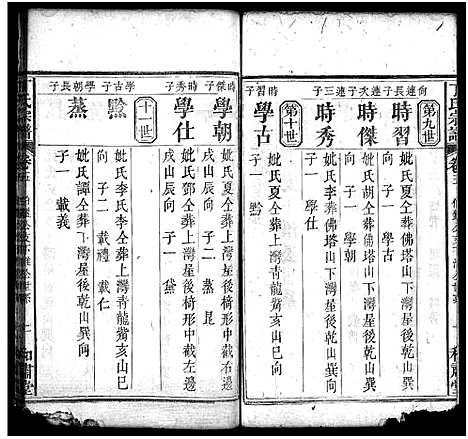 丁氏宗譜
卷三
第九世
向連長子
時習
妣氏夏仝葬佛塔山下灣屋後乾山巽向
子一 學古
連次子
時傑
妣氏胡仝葬佛塔山下灣屋後乾山巽向
子一 學朝
連三子
時秀
妣氏 仝葬佛塔山下灣屋後乾山巽向
子一 學仕
第十世
時習子
學古
妣氏夏仝葬上灣屋後乾山巽向
子一 黔
時傑子
學朝
妣氏夏仝葬上灣屋後椅形中截右邊
戌山辰向 子二 蒸 昆
時秀子
學仕
妣氏鄧仝葬上灣屋後椅形中截左邊
戌山辰向 子一 黛
十一世
學古子
黔
妣氏李氏李仝葬上灣青龍嘴亥山巳
向 子二 載禮 載仁
學朝長子
蒸
妣氏譚仝葬上灣屋後乾山巽向
子一 載義
丁氏宗譜
卷三